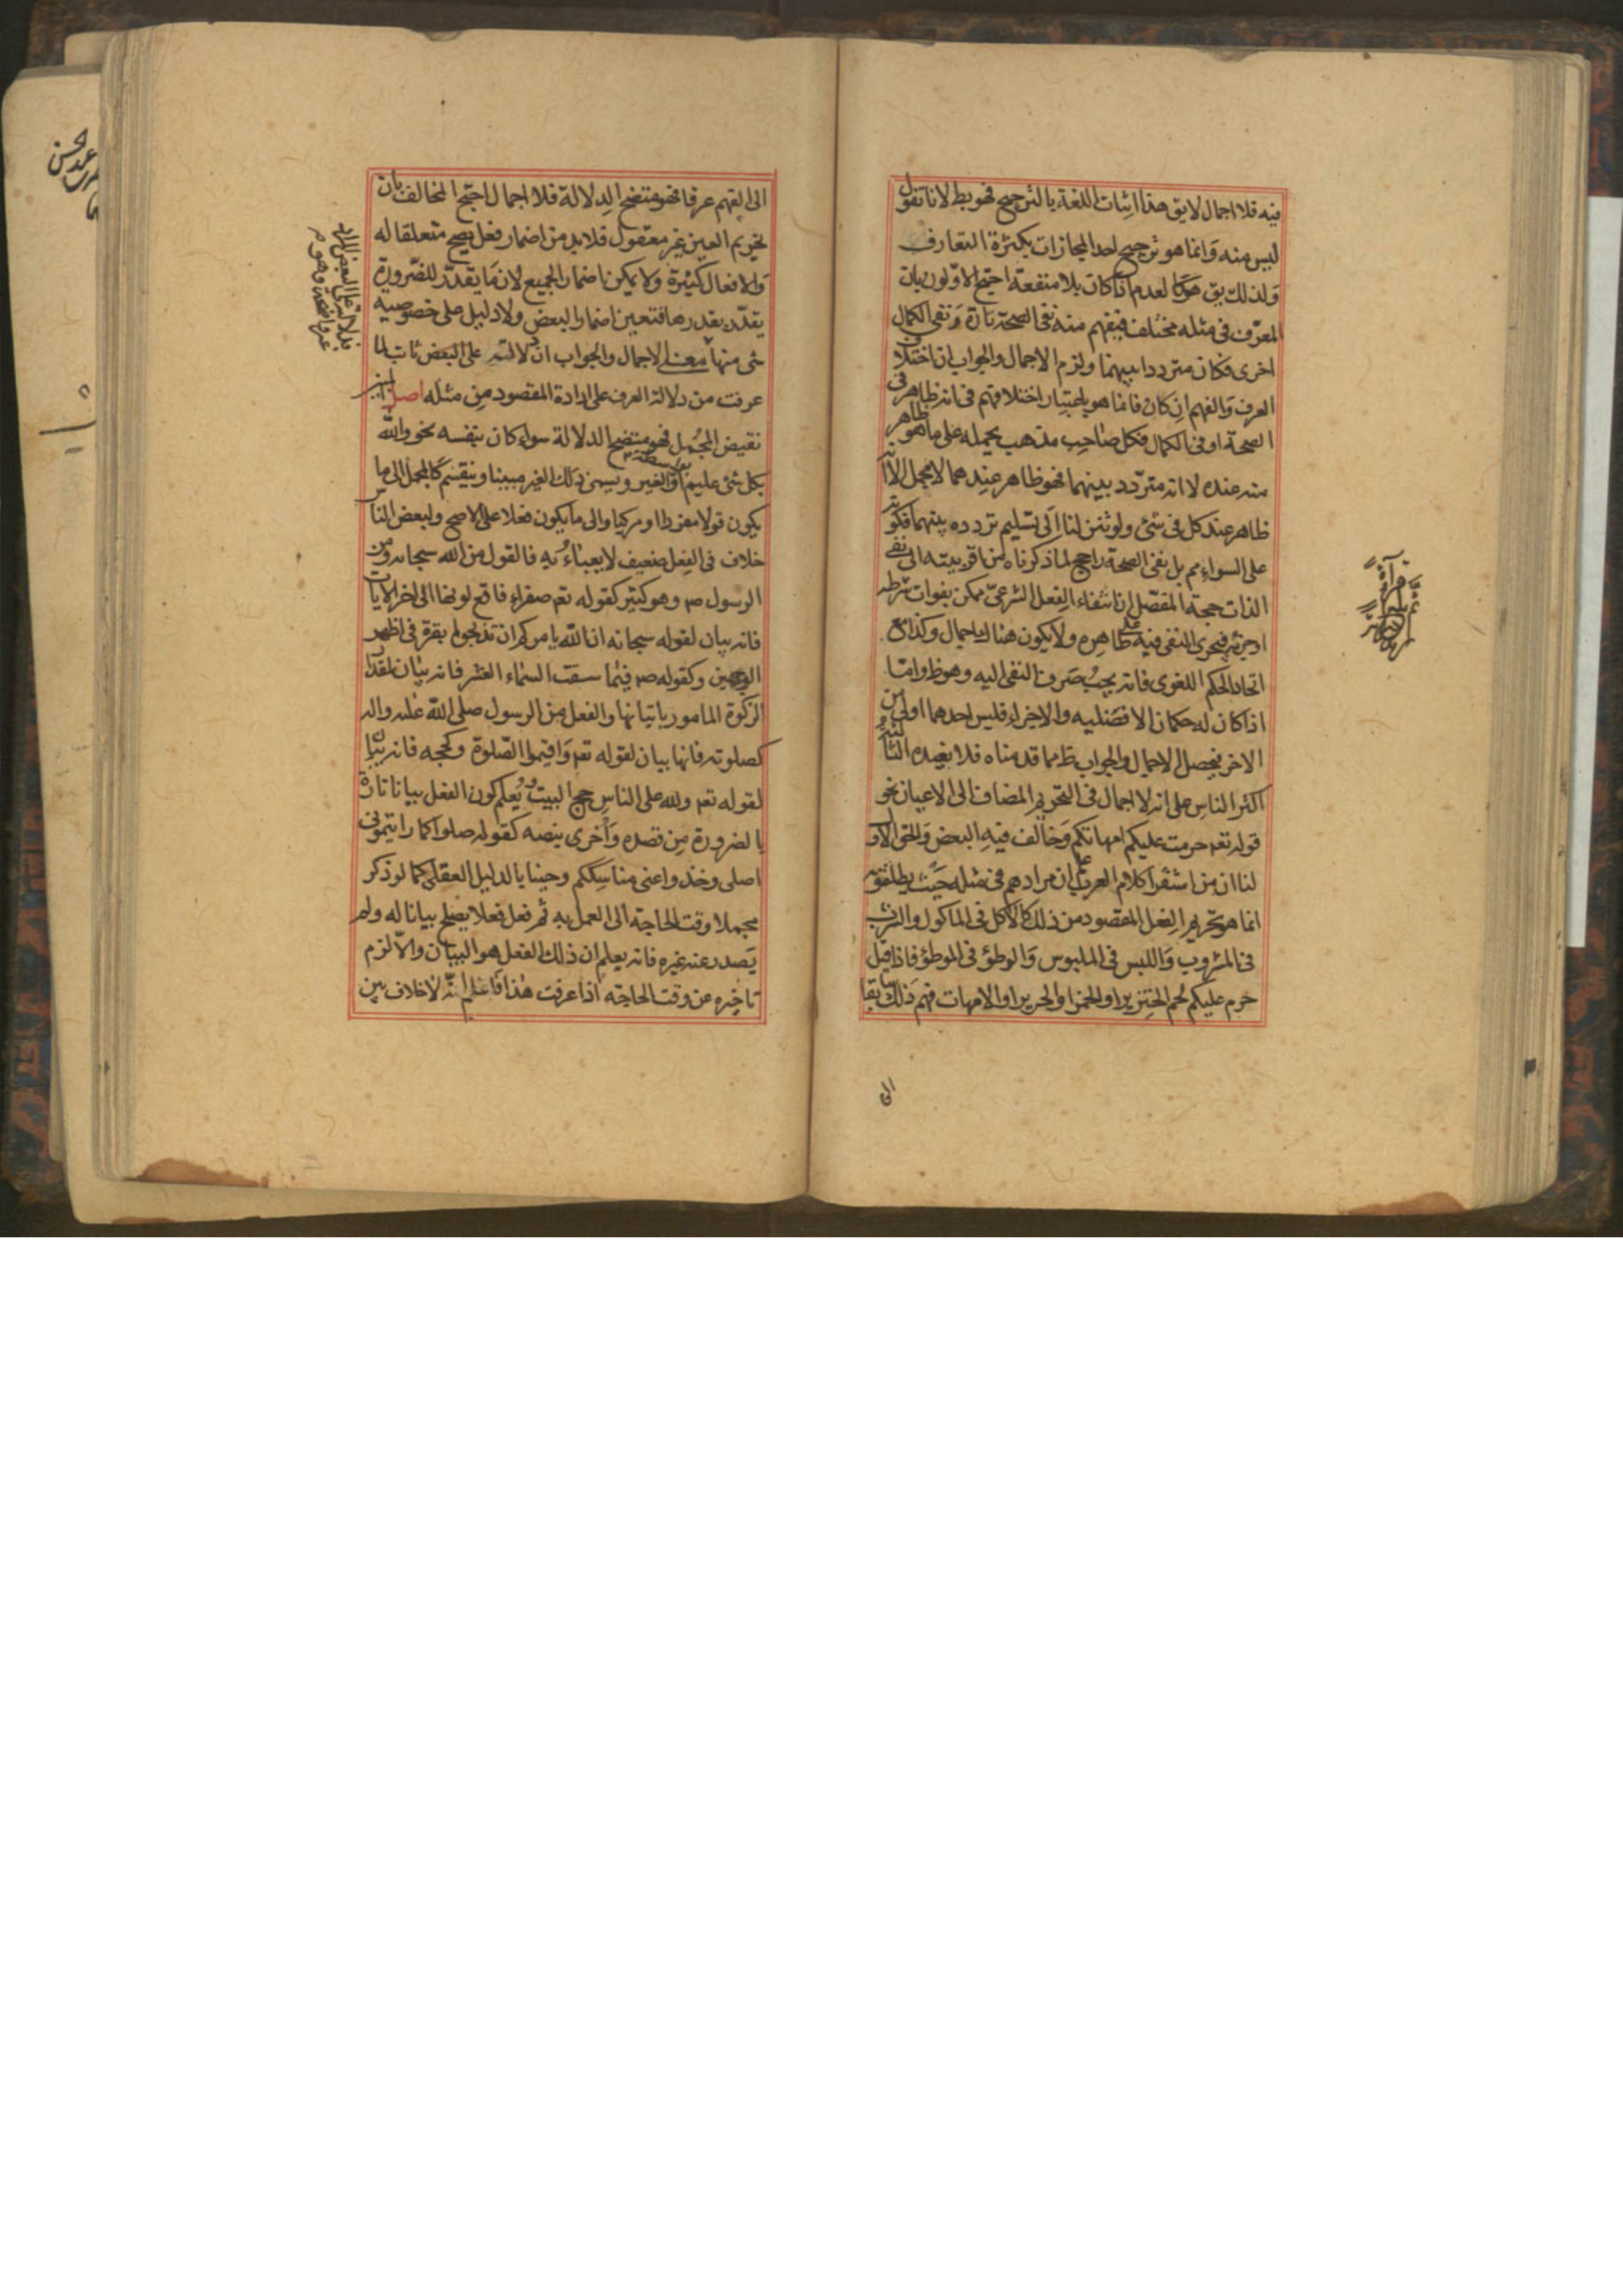 فيه فلا اجمال لايق هذا اثبات اللغة بالترجيح فهو بط لانا نقول
ليس منه وانما هو ترجيح احد المجازات بكثرة التعارف
ولذلك يق هو كا لعدم اذا كان بلا منفعة احتج الاولون بان
العرف فى مثله مختلف فيفهم منه نفى الصحة تارة ونفى الكمال
اخرى فكان مترددا بينهما ولزم الاجمال والجواب ان اختلاف
العرف والفهم ان كان فانما هو باعتبار اختلافهم فى انه ظاهر فى
الصحة او فى الكمال فكل صاحب مذهب يحمله على ما هو ظاهر
منه عنده لا انه متردد بينهما فهو ظاهر عندهما لا مجمل الا انه
ظاهر عند كل فى شئ ولو تنزلنا الى تسليم تردده بينهما فكونه
على السواء مم بل نفى الصحة راجح لما ذكرناه من اقربيته الى نفى
الذات حجة المفصل ان انتفاء الفعل الشرعى ممكن بفوات شرطه
او جزئه فيجرى النفى فيه على ظاهره ولا يكون هناك اجمال وكذا مع
اتحاد الحكم اللغوى فانه يجب صرف النفى اليه وهو ظ واما
اذا كان له حكمان الافضليه والاجزاء فليس احدهما اولى من
الاخر فيحصل الاجمال والجواب ظ مما قدمناه فلا نعيده
اكثر الناس على انه لا اجمال فى التحريم المضاف الى الاعيان نحو
قوله تعه حرمت عليكم امهاتكم وخالف فيه البعض والحق الاول
لنا ان من استقرا كلام العرب علم ان مرادهم فى مثله حيث يطلقونه
انما هو تحريم الفعل المقصود من ذلك كالاكل فى الماكول والشرب
فى المشروب واللبس فى الملبوس والوطؤ فى الموطؤ فاذا قيل
حرم عليكم لحم الخنزير او الخمر او الحرير او الامهات فهم ذلك سابقا
الى
الى الفهم عرفا فهو متضح الدلالة فلا اجمال احتج المخالف بان
تحريم العين غير معقول فلا بد من اضمار فعل يصح متعلقا له
والافعال كثيرة ولا يمكن اضمار الجميع لان ما يقدر للضرورة
يقدر بقدرها فتعين اضمار البعض ولا دليل على خصوصيه
شئ منها معنى الاجمال والجواب ان دلالته على البعض ثابت لما
عرفت من دلالة العرف على ارادة المقصود من مثله اصل المبين
نقيض المجمل فهو متضح الدلالة سواء كان بنفسه نحو والله
بكل شئ عليم او بواسطة الغير ويسمى ذلك الغير مبينا وينقسم كالمجمل الى ما
يكون قولا مفردا او مركبا والى ما يكون فعلا على الاصح ولبعض الناس
خلاف فى الفعل ضعيف لا يعباء به فالقول من الله سبحانه ومن
الرسول ص وهو كثير كقوله تعه صفراء فاقع لونها الى اخر الايات
فانه بيان لقوله سبحانه ان الله يامركم ان تذبحوا بقرة فى اظهر
الوجهين وكقوله ص فيما سقت السماء العشر فانه بيان لمقدار
الزكوة المامور باتيانها والفعل من الرسول صلى الله عليه واله
كصلوته فانها بيان لقوله تعه واقيموا الصلوة وكحجه فانه بيان
لقوله تعه ولله على الناس حج البيت ويعلم كون الفعل بيانا تارة
بالضرورة من قصده واخرى بنصه كقوله صلوا كما رايتمونى
اصلى وخذوا عنى مناسككم وحينا بالدليل العقلى كما لو ذكر
مجملا وقت الحاجة الى العمل به ثم فعل فعلا يصلح بيانا له ولم
يصدر عنه غيره فانه يعلم ان ذلك الفعل هو البيان والا لزم
تاخيره عن وقت الحاجة اذا عرفت هذا فاعلم انه لا خلاف بين